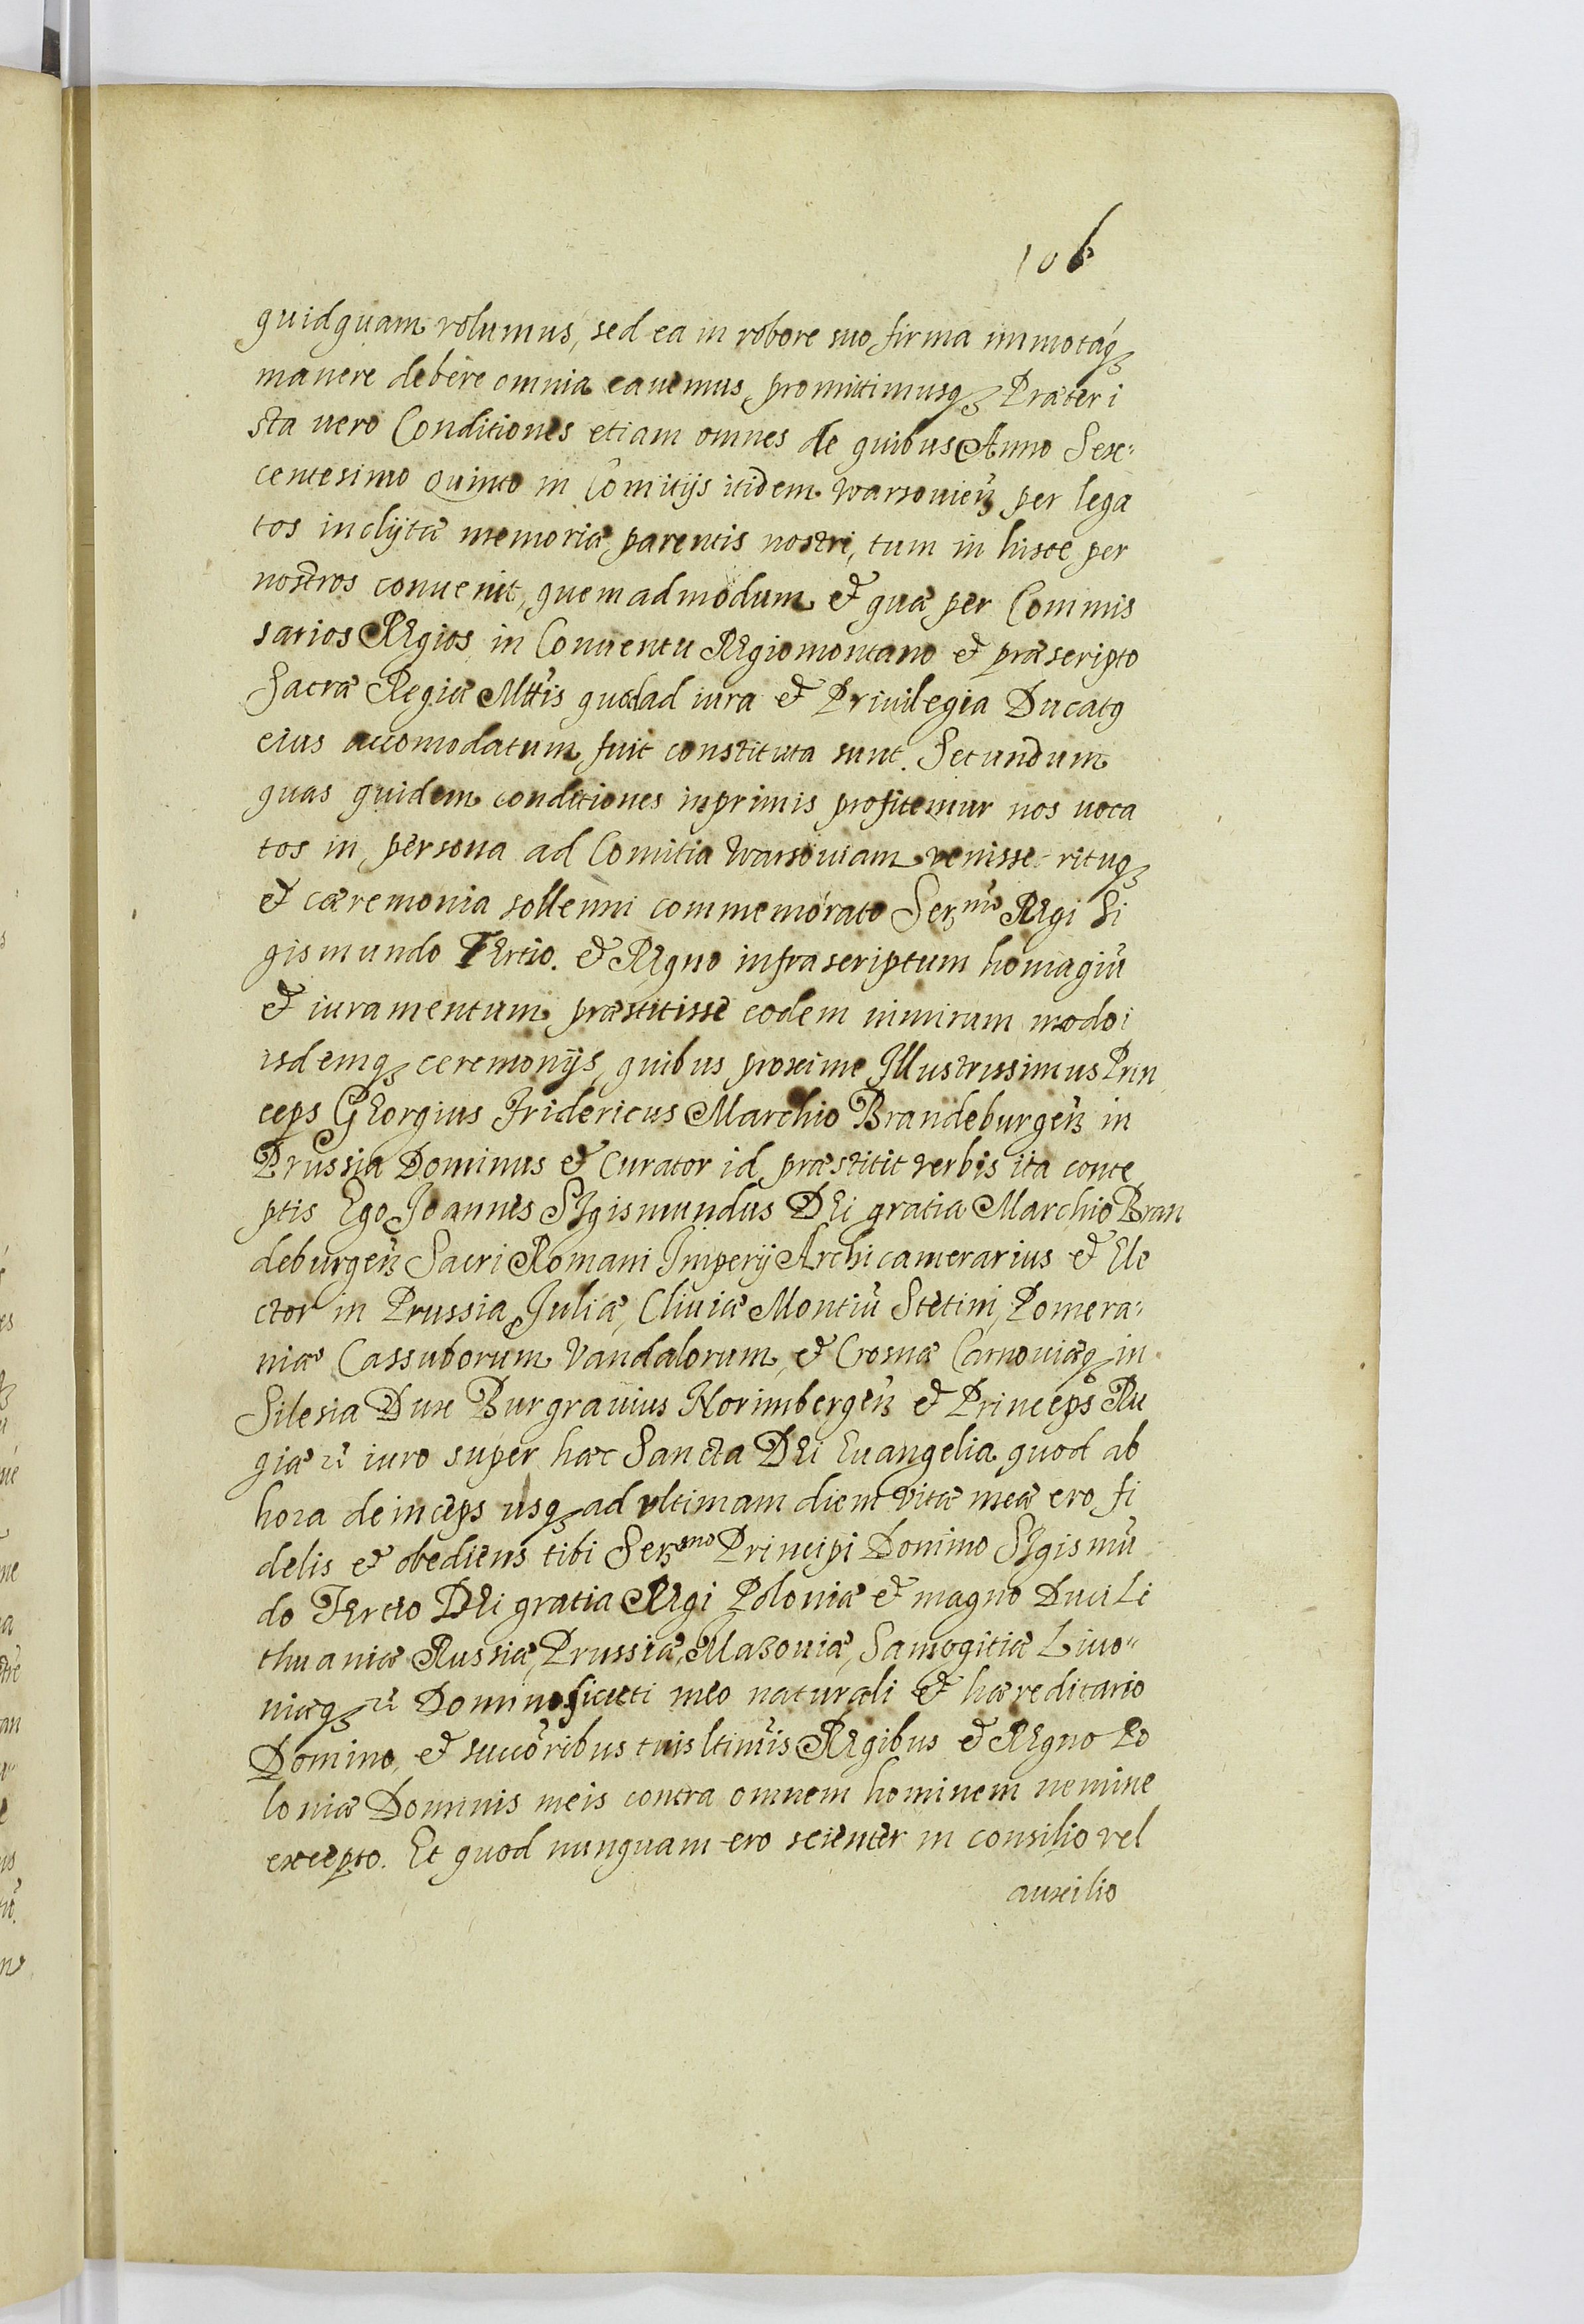 106
quidquam volumus, sed ea in robore suo firma immotaq₃
manere debere omnia cavemus, promittimusq₃ Præter i
sta uero Conditiones etiam omnes de quibus Anno Sex:
centesimo Quinto in Comitijs itidem Warsouien̄ per lega
tos inclÿtæ memoriæ parentis nostri, tum in hisce per
nostros conuenit, quemadmodum & quæ per Commis
sarios REgios in Conuentu REgiomontano & præscripto
Sacræ Regiæ Mttis quod ad iura & Priuilegia Ducatq
eius accomodatum fuit constituta sunt. Secundum
quas quidem conditiones inprimis profitemur nos uoca
tos in persona ad Comitia Warsouiam venisse rituq₃
& cæremonia sollenni commemorato Serᵐᵒ REgi Si
gismundo TErtio. & REgno infrascriptum homagiū
& iuramentum præstitisse eodem nimirum modo i
isdemq₃ ceremonijs, quibus proxime Illustrissimus Prin
ceps GEorgius Fridericus Marchio Brandeburgen̄ in
Prussia Dominus & Curator id præstitit verbis ita conce
ptis Ego Joannes SIgismundus DEi gratia Marchio Bran
deburgen̄ Sacri Romani Imperij Archicamerarius & Ele
ctor in Prussia, Juliæ, Cliuiæ Montiū Stetini, Pomera:
niæ Cassuborum Vandalorum, & Crosnæ Carnouiæq₃ in
Silesia Dux Burgrauius Norimbergen̄ & Princeps Ru
giæ ꝛč iuro super hæc Sancta DEi Euangelia quod ab
hora deinceps usq₃ ad ultimam diem vitæ meæ ero fi
delis & obediens tibi Serᵉⁿᵒ Principi Domino SIgismū
do TErtio DEi gratia REgi Poloniæ & magno Duci Li
thuaniæ Russiæ, Prussiæ, Mazouiæ, Samogitiæ Liuo"
niæq₃ ꝛč Domino sicuti meo naturali & hæreditario
Domino, & succōribus tuis ltimis REgibus & REgno Po
loniæ Dominis meis contra omnem hominem nemine
excepto. Et quod nunquam ero scienter in consilio vel
auxilio